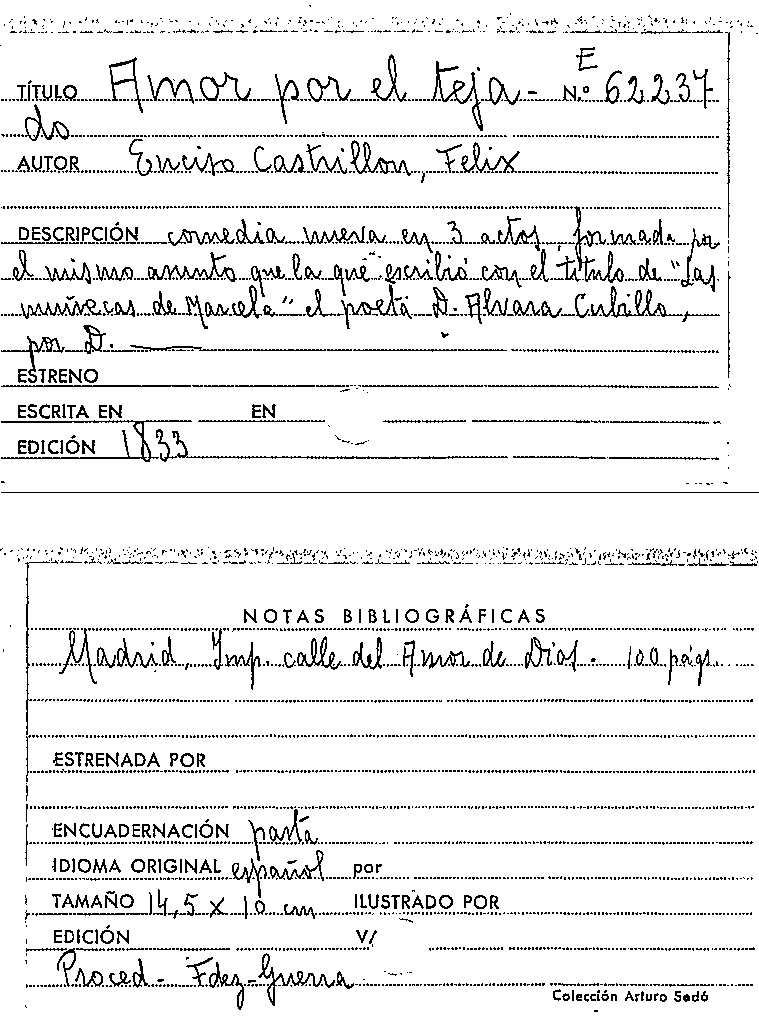 TÍTULO Amor por el teja- N.º E 62237
do
AUTOR Enciso Castrillon, Felix
DESCRIPCIÓN comedia nueva en 3 actos, formada por
el mismo asunto que la que escribió con el título de "Las
muñecas de Marcela" el poeta D. Alvara Cubillo,
por D. ———
ESTRENO
ESCRITA EN EN
EDICIÓN 1833
NOTAS BIBLIOGRÁFICAS
Madrid, Imp. calle del Amor de Dios. 100 págs.
ESTRENADA POR
ENCUADERNACIÓN pasta
IDIOMA ORIGINAL español por
TAMAÑO 14,5 x 10 cm ILUSTRADO POR
EDICIÓN V/
Proced- Fdez-Guerra
Colección Arturo Sedó